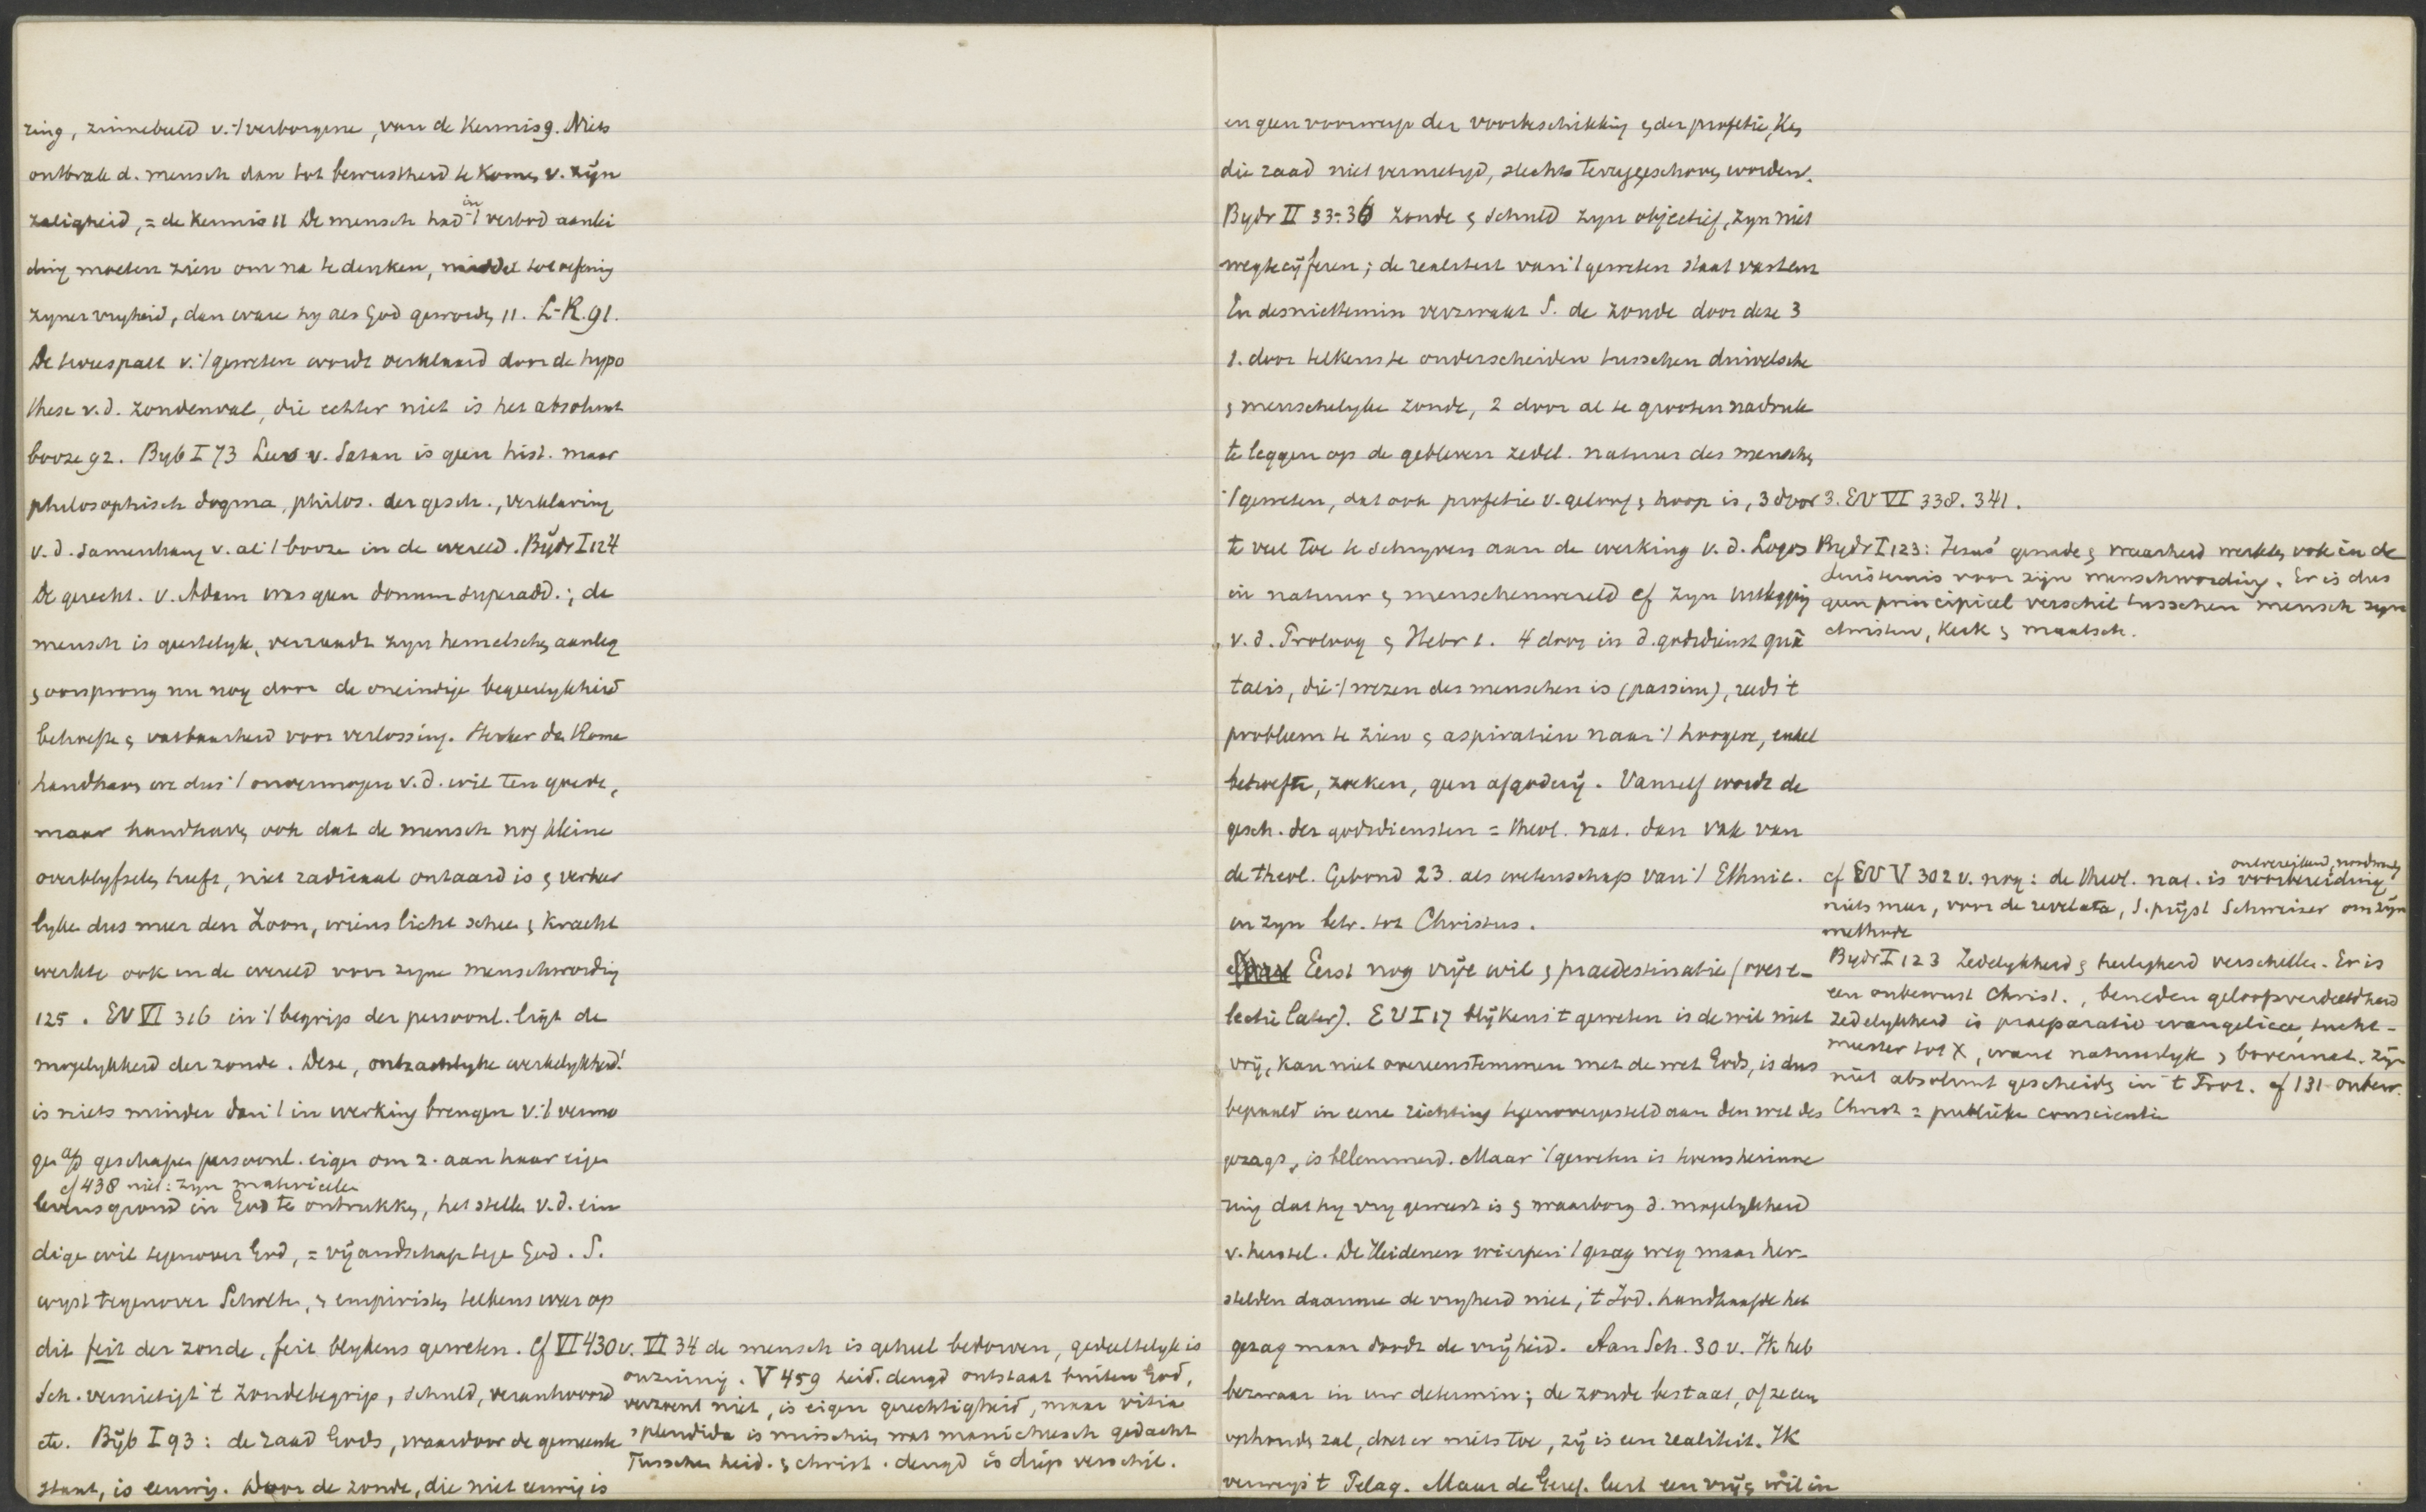 zing, zinnebeeld v. 't verborgene, van de Kennis 9. Niets
ontbrak d. mensch dan tot bewustheid te komen v. zijn
zaligheid, = de Kennis 11 De mensch had in 't verbod aanlei
ding moeten zien om na te denken, middel tot oefening
zyner vryheid, dan ware hy als God geworden 11. L-R. 91.
De tweespalt v. 't geweten wordt verklaard door de hypo
these v.d. zondenval, die echter niet is het absoluut
booze 92. Byb I 73 Leer v. Satan is geen hist. maar
philosophisch dogma, philos. der gesch., verklaring
v.d. samenhang v. al 't booze in de wereld. Bijdr I 124
De gerecht. v. Adam was geen donum superadd.; de
mensch is geestelyk, verraadt zyn hemelschen aanleg
& oorsprong nu nog door de oneindige begeerlykheid
behoefte & vatbaarheid voor verlossing. Sterker dan Rome
handhaven we dus 't onvermogen v.d. wil ten goede,
maar handhaven ook dat de mensch nog kleine
overblyfselen heeft, niet radicaal ontaard is & verheer
lyken dus meer den Zoon, wiens licht scheen & kracht
werkte ook in de wereld voor zyne menschwording
125. EV VI 316 in 't begrip der persoonl. ligt de
mogelykheid der zonde. Deze, ontzachlyke werkelykheid!
is niets minder dan 't in werking brengen v. 't vermo
gen af geschapen persoonl. eigen om z. aan haar eigen
cf 438 niet: zyn materieele
levensgrond in God te onttrekken, het stellen v.d. ein
dige wil tegenover God, = vijandschap tegen God. S.
wyst tegenover Scholten, & empiristen telkens weer op
dit feit der zonde, feit blykens geweten. Cf VI 430 v.
Sch. vernietigt 't zondebegrip, schuld, verantwoord
etc. Bijb I 93: de zaad Gods, waardoor de gemeente
staat, is eeuwig. Door de zonde, die niet eeuwig is
VI 34 de mensch is geheel bedorven, gedeeltelyk is
onzinnig. V 459 heid. deugd ontstaat buiten God,
verzoent niet, is eigen gerechtigheid, maar vitia
splendida is misschien wat manicheesch gedacht
Tusschen heid. & christ. deugd is diep verschil.
en geen voorwerp der voorbeschikking & der profetie, Ken
die zaad niet vernietigd, slechts teruggeschoven worden.
Bydr II 33-36 zonde & schuld zyn objectief, zyn niet
weg te cijferen; de realiteit van 't geweten staat vast en
En desniettemin verzwakt S. de zonde door deze 3
1. door telkens te onderscheiden tusschen duivelsche
& menschelyke zonde, 2 door al te grooten nadruk
te leggen op de gebleven zedel. natuur des menschen
't geweten, dat ook profetie v. geloof & hoop is, 3 door
te veel toe te schryven aan de werking v.d. Logos
in natuur & menschenwereld cf zyn uitlegging
v.d. Proloog & Hebr 1. 4 door in d. godsdienst quâ
talis, die 't wezen des menschen is (passim), reeds 't
probleem te zien & aspiratien naar 't hoogere, enkel
behoefte, zoeken, geen afgoderij. Vanzelf wordt de
gesch. der godsdiensten = theol. nat. dan vak van
de theol. Gebond 23. als wetenschap van 't Ethnic.
en zyn betr. tot Christus.
Eerst nog vrije wil & praedestinatie (over e-
lectie later). EV I 17 blijkens 't geweten is de wil niet
vrij, kan niet overeenstemmen met de wet Gods, is dus
bepaald in eene richting tegenovergesteld aan den wil des
gezags, is belemmerd. Maar 't geweten is tevens herinne
ring dat hy vry geweest is & waarborg d. mogelykheid
v. herstel. De Heidenen wierpen 't gezag weg maar her-
stelden daarmee de vryheid niet; 't Jod. handhaafde het
gezag maar doodt de vrijheid. Aan Sch. 30 v. Ik heb
bezwaar in uw determin; de zonde bestaat, of ze een
ophouden zal, doet er niets toe, zij is een realiteit. Ik
verwerp 't Pelag. Maar de Geref. leert een vrijen wil in
3. EV VI 338. 341.
Bydr I 123: Jezus' genade & waarheid werkten ook in de
duisternis voor zijn menschwording. Er is dus
geen principieel verschil tusschen mensch zyn
christen, Kerk & maatsch.
cf EV V 302 v. nog: de theol. nat. is voorbereiding
niets meer, voor de revelata, S. prijst Schweizer om zijn
methode
Bydr I 123 Zedelykheid & heiligheid verschillen. Er is
een onbewust Christ., beneden geloofsverdeeldheid
Zedelykheid is praeparatio evangelica, tucht-
meester tot X, want natuurlyk & bovennat. zyn
niet absoluut gescheiden in 't Prot. cf 131 onbew.
Christ = publieke conscientie